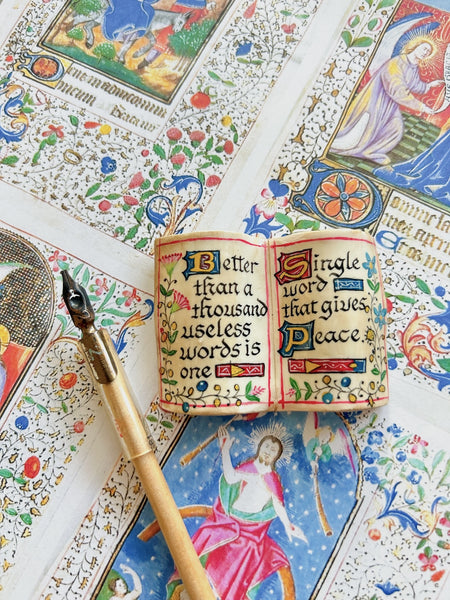 Better
than a
thousand
useless
words is
one
Single
word
that gives
Peace.